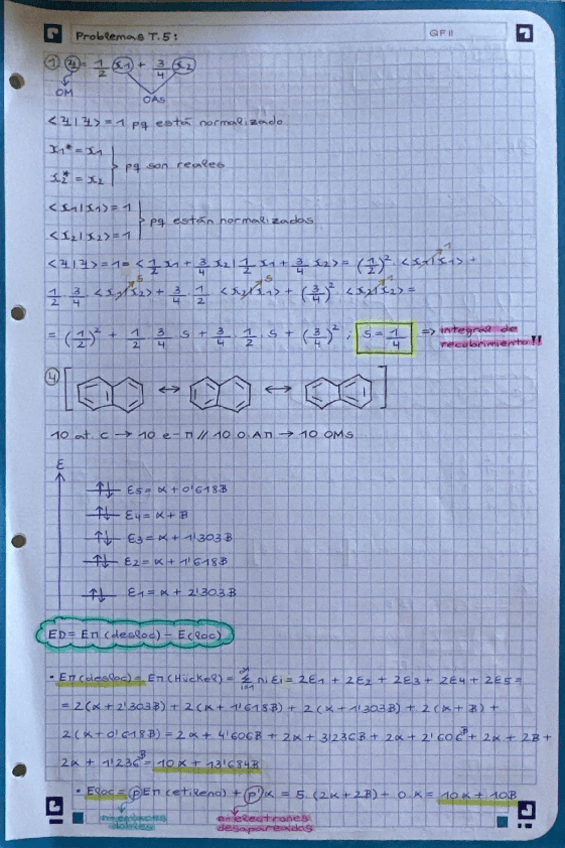 Problemas T.5:
QFII
① Ψ = 1/2 x1 + 3/4 x2
OM
OAs
<Ψ|Ψ> = 1 pq está normalizado
x1* = x1
x2* = x2
pq son reales
<x1|x1> = 1
<x2|x2> = 1
pq están normalizadas
<Ψ|Ψ> = 1 = <1/2 x1 + 3/4 x2 | 1/2 x1 + 3/4 x2> = (1/2)² · <x1|x1> 1 +
1/2 · 3/4 · <x1|x2> S + 3/4 · 1/2 <x2|x1> S + (3/4)² · <x2|x2> 1 =
= (1/2)² + 1/2 · 3/4 · S + 3/4 · 1/2 · S + (3/4)² ; S = 1/4 => integral de recubrimiento!!
④ [ ↔ ↔ ]
10 at. C → 10 e-π // 10 O.Aπ → 10 OMs
E
E5 = α + 0'618B
E4 = α + B
E3 = α + 1'303B
E2 = α + 1'618B
E1 = α + 2'303B
ED = Eπ (desloc) - E(loc)
· Eπ(desloc) = Eπ (Hückel) = Σ ni Ei = 2E1 + 2E2 + 2E3 + 2E4 + 2E5 =
= 2(α + 2'303B) + 2(α + 1'618B) + 2(α + 1'303B) + 2(α + B) +
2(α + 0'618B) = 2α + 4'606B + 2α + 3'236B + 2α + 2'606B + 2α + 2B +
2α + 1'236B = 10α + 13'684B
· Eloc = pEπ (etileno) + p'α = 5 · (2α + 2B) + 0 · α = 10α + 10B
nº enlaces dobles
nº electrones desapareados